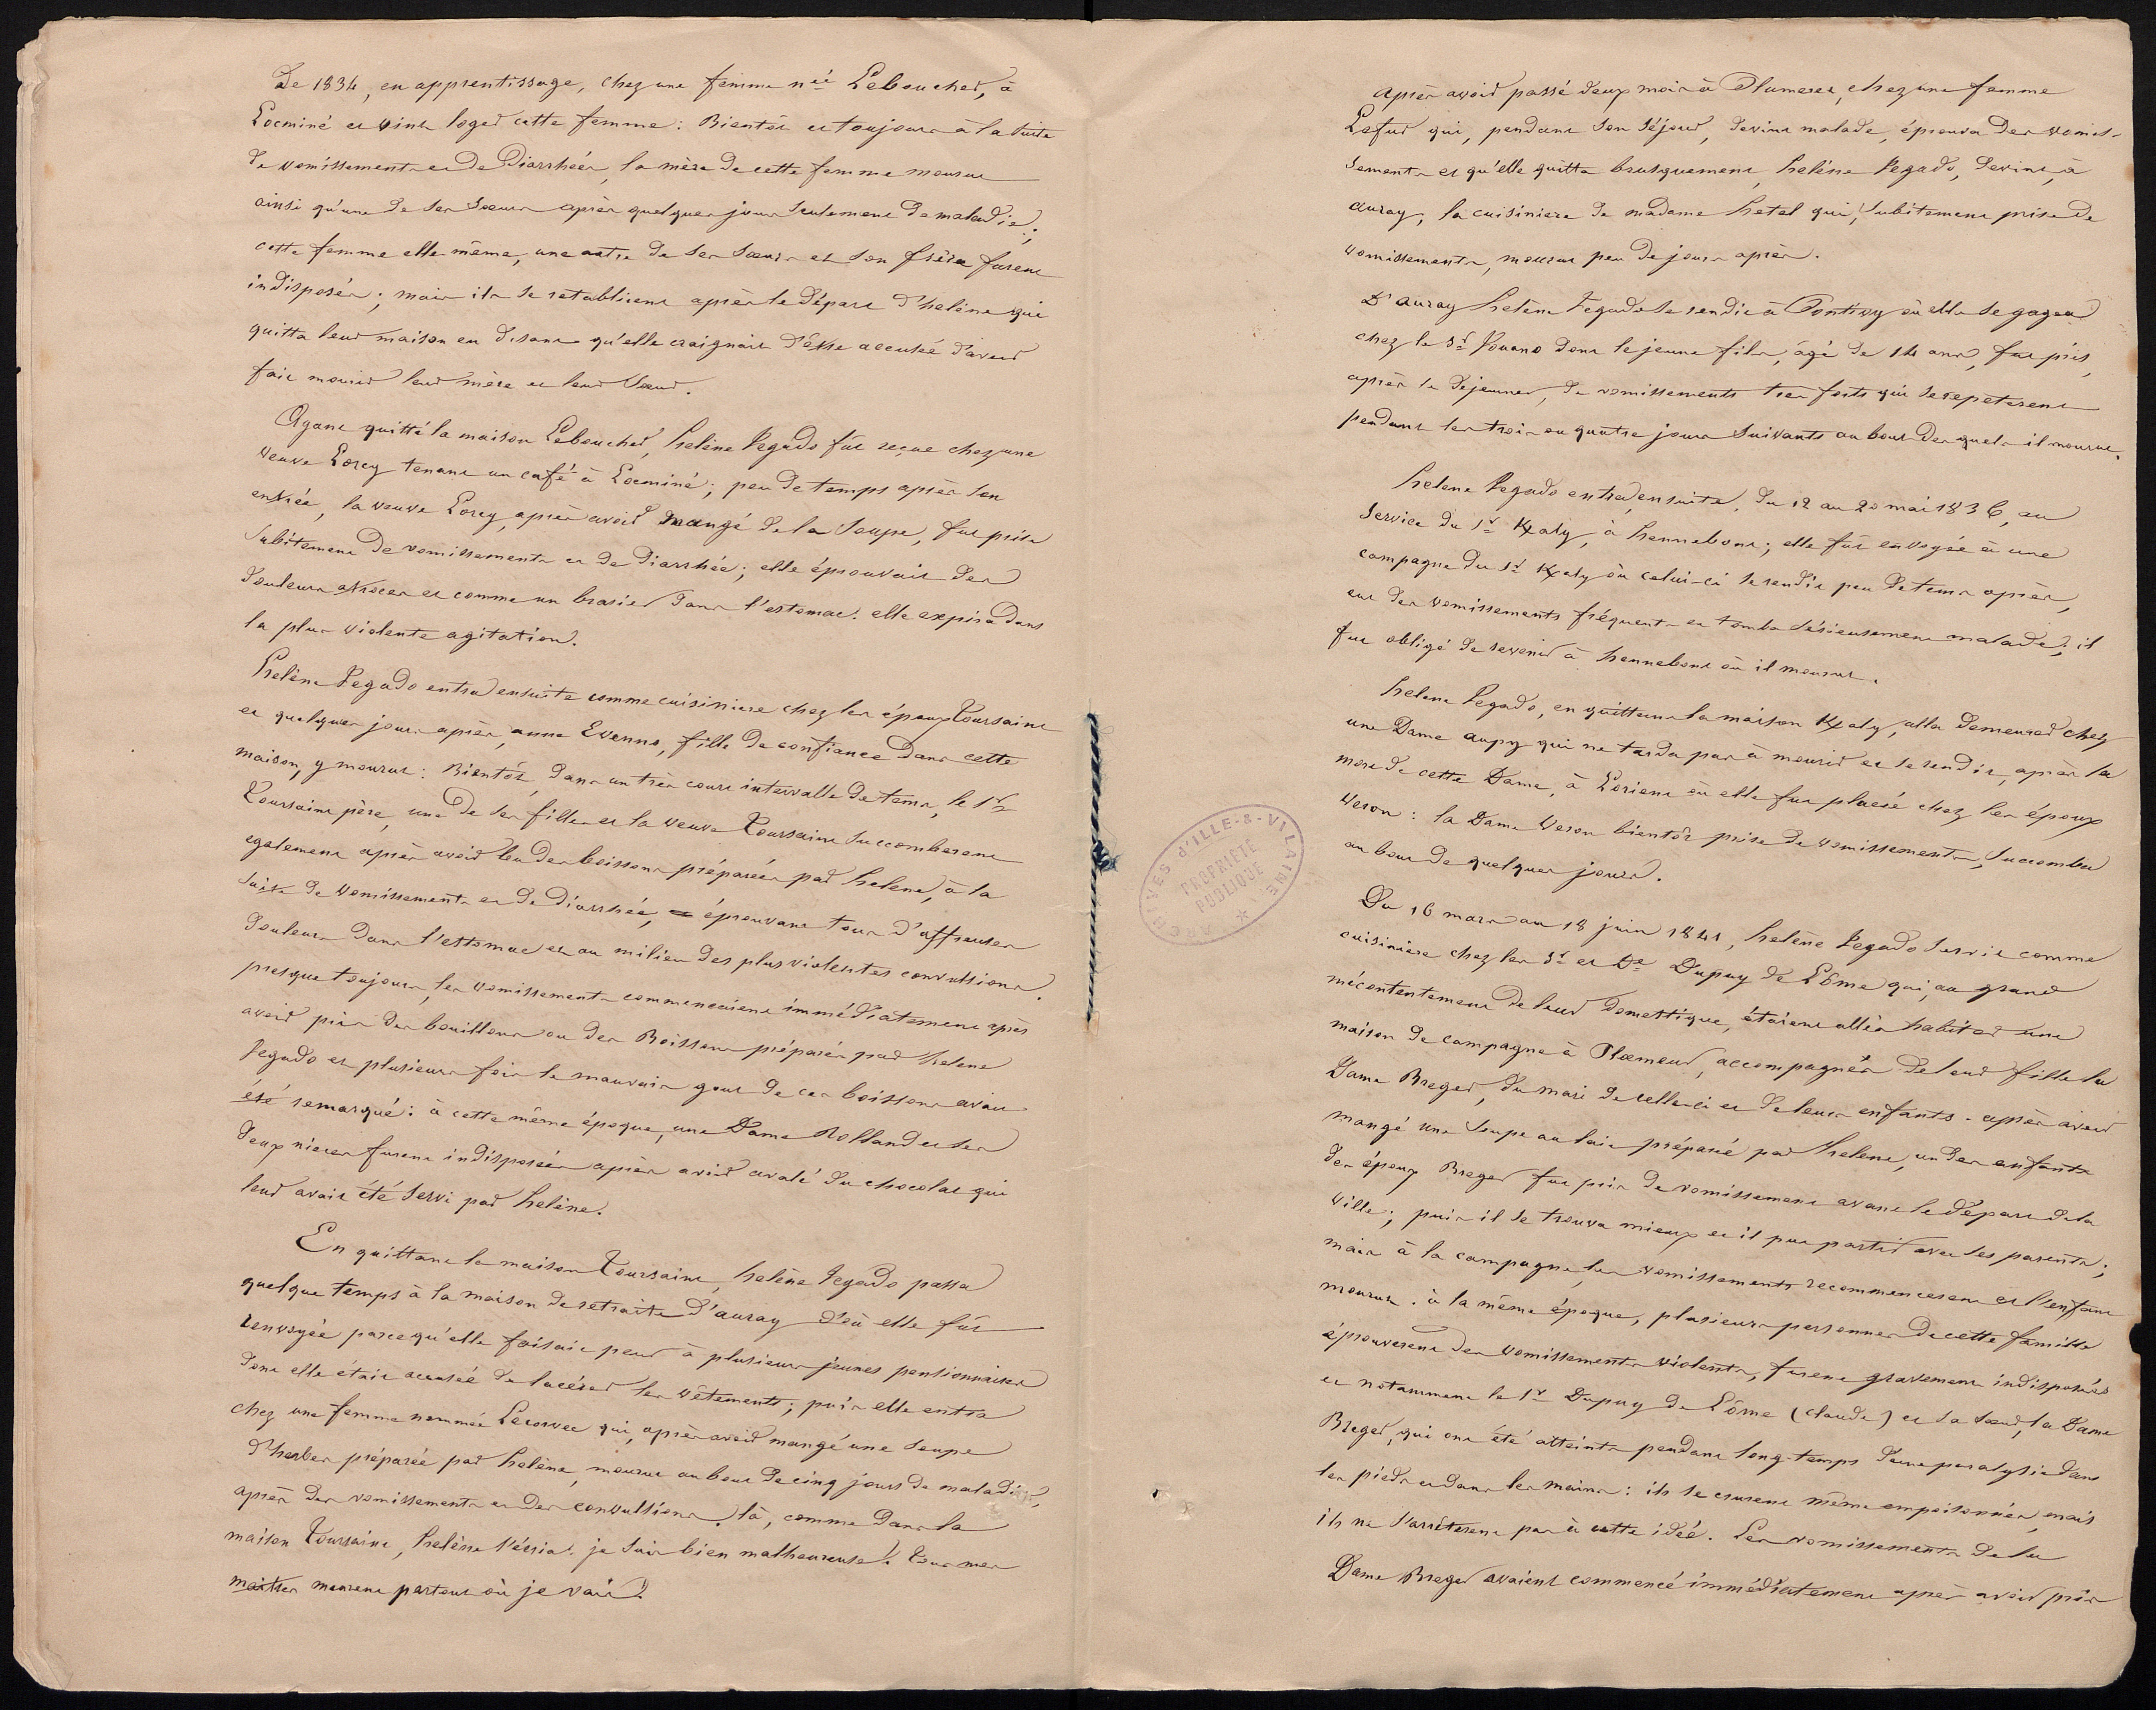 De 1834, en apprentissage, chez une femme née Leboucher, à
Locminé et vint loger cette femme : Bientôt et toujours à la suite
de vomissements et de Diarrhées, la mère de cette femme mourut
ainsi qu'une de ses sœurs après quelques jours seulement de maladie ;
cette femme elle même, une autre de ses sœurs et son frère furent
indisposés ; mais ils se retablirent après le départ d'helène qui
quitta leur maison en disant qu'elle craignait d'être accusée d'avoir
fait mourir leur mère et leur sœur.
Ayant quitté la maison Leboucher, helène Jegado fût reçue chez une
veuve Lorey tenant un café à Locminé ; peu de temps après son
entrée, la veuve Lorey, après avoir mangé de la soupe, fut prise
subitement de vomissements et de diarrhée ; elle éprouvait des
douleurs atroces et comme un brasier dans l'estomac. elle expira dans
la plus violente agitation.
helène Jegado entra ensuite comme cuisiniere chez les époux Toursaint
et quelques jours après, anne Evenno, fille de confiance dans cette
maison, y mourut : Bientôt, dans un très court intervalle de tems, le Sr
Toursaint père, une de ses filles et la veuve Toursaint succomberent
egalement après avoir bu des boissons préparées par helene, à la
suite de vomissements et de diarrhée, éprouvant tous d'affreuses
douleurs dans l'estomac et au milieu des plus violentes convulsions.
presque toujours, les vomissements commençaient immédiatement après
avoir pris des bouillons ou des Boissons préparés par helene
Jegado et plusieurs fois le mauvais gout de ces boissons avait
été remarqué : à cette même époque, une Dame Rolland et ses
deux nieces furent indisposées après avoir avalé du chocolat qui
leur avait été servi par helène.
En quittant la maison Toursaint, helène Jegado passa
quelque temps à la maison de retraite d'auray d'où elle fût
renvoyée parce qu'elle faisait peur à plusieurs jeunes pensionnaires
dont elle était accusée de lacérer les vêtements ; puis elle entra
chez une femme nommée Lecorvec qui, après avoir mangé une soupe
d'herbes préparée par helène, mourut au bout de cinq jours de maladie,
après des vomissements et des convulsions. là, comme dans la
maison Toursaint, helène s'écria : je suis bien malheureuse ! tous mes
maitres meurent partout où je vais !
Après avoir passé deux mois à Plumeret, chez une femme
Lefur qui, pendant son séjour, devint malade, éprouva des vomis-
sements et qu'elle quitta brusquement, helène Jegado, devint, à
auray, la cuisiniere de madame hetel qui, subitement prise de
vomissements, mourut peu de jours après.
D'auray helène Jegado se rendit à Pontivy où elle se gagea
chez le Sr Jouano dont le jeune fils, âgé de 14 ans, fut pris,
après le dejeuner, de vomissements très forts qui se repeterent
pendant les trois ou quatre jours suivants au bout desquels il mourut.
helene Jegado entra, ensuite, du 12 au 20 mai 1836, au
service du Sr Kraly, à hennebont ; elle fût envoyée à une
campagne du Sr Kraly où celui-ci se rendit peu de tems après,
eut des vomissements fréquents et tomba sérieusement malade ; il
fut obligé de revenir à hennebont où il mourut.
helene Jegado, en quittant la maison Kraly, alla demeurer chez
une Dame aupy qui ne tarda pas à mourir et se rendit, après la
mort de cette Dame, à Lorient où elle fut placée chez les époux
Veron : la Dame Veron bientôt prise de vomissements, succomba
au bout de quelques jours.
Du 16 mars au 18 juin 1841, helène Jegado servit comme
cuisiniere chez les Sr et De Dupuy de Lôme qui, au grand
mécontentement de leur domestique, étaient allés habiter une
maison de campagne à Plœmeur, accompagnés de leur fille la
Dame Breger, du mari de celle-ci et de leurs enfants. après avoir
mangé une soupe au lait préparée par helene, un des enfants
des époux Breger fut pris de vomissement avant le départ de la
ville ; puis il se trouva mieux et il put partir avec ses parents ;
mais à la campagne, les vomissements recommencerent et l'enfant
mourut. à la même époque, plusieurs personnes de cette famille
éprouverent des vomissements violents, furent gravement indisposées
et notamment le Sr Dupuy de Lôme (claude) et sa sœur, la Dame
Breger, qui ont été atteints pendant long-temps d'une paralysie dans
les pieds et dans les mains : ils se crurent même empoisonnés, mais
ils ne s'arrêterent pas à cette idée. Les vomissements de la
Dame Breger avaient commencé immédiatement après avoir pris
ARCHIVES D'ILLE-&-VILAINE
PROPRIÉTÉ
PUBLIQUE